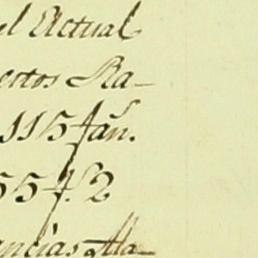 el Actual
ertos Ra-
115 fan.s
55 f. 2
ancias